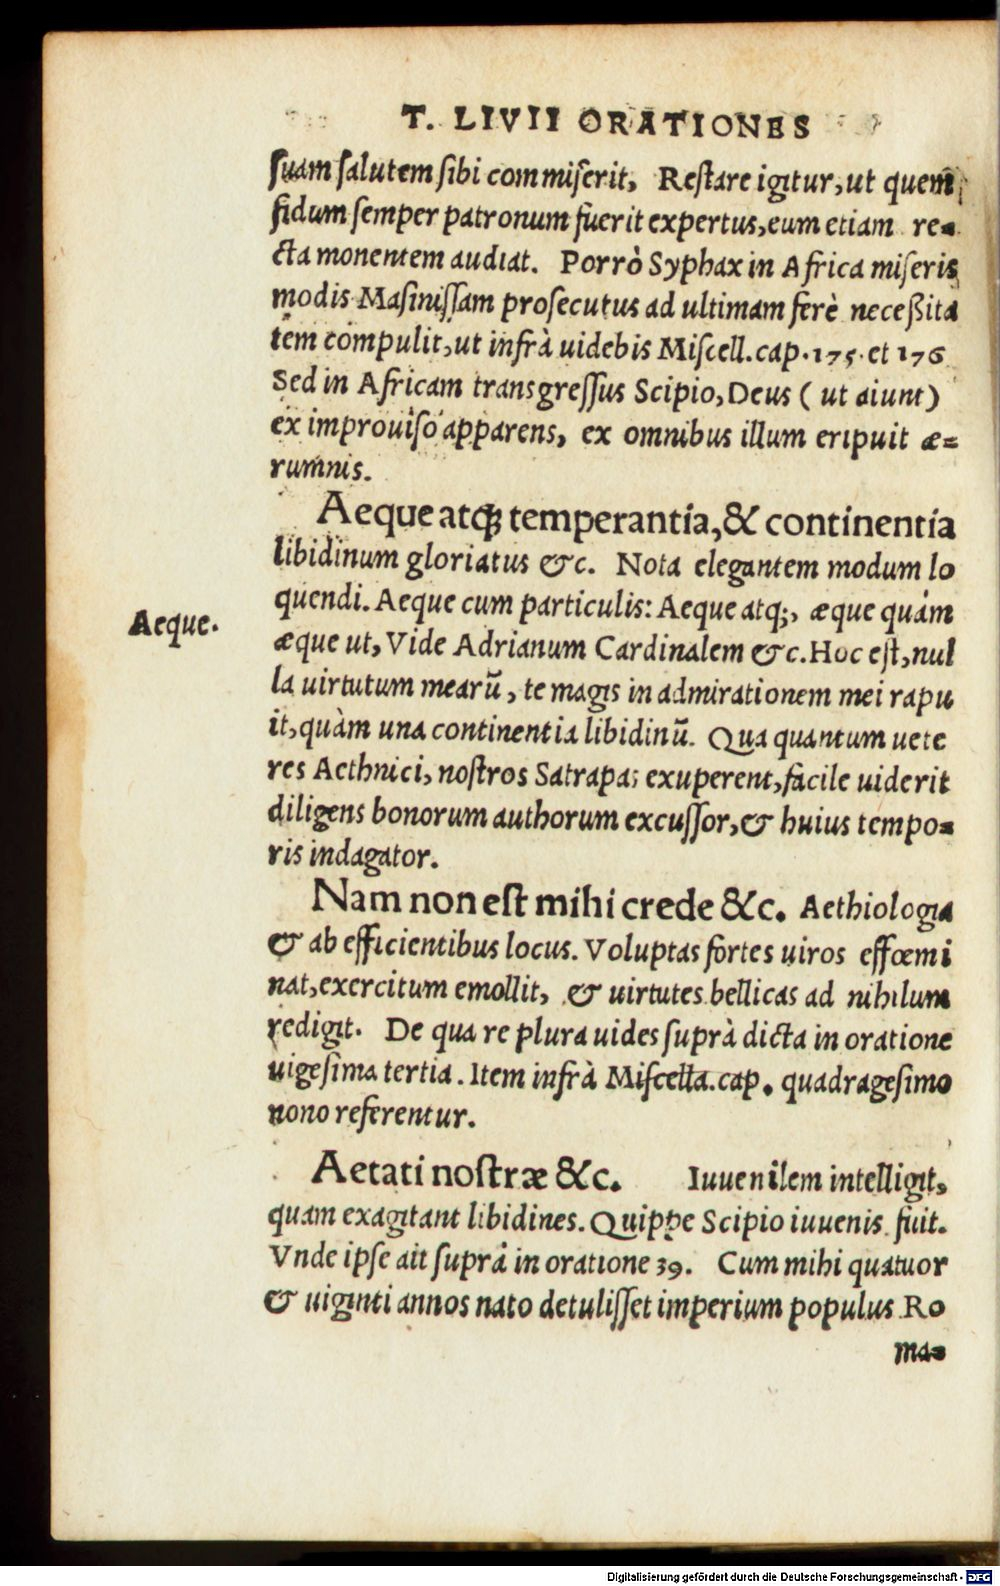 T. LIVII ORATIONES
suam salutem sibi commiserit, Restare igitur, ut quem
fidum semper patronum fuerit expertus, eum etiam re=
cta monentem audiat. Porrò Syphax in Africa miseris
modis Masinissam prosecutus ad ultimam ferè neceßita
tem compulit, ut infrà uidebis Miscell. cap. 175. et 176
Sed in Africam transgressus Scipio, Deus ( ut aiunt )
ex improuiso apparens, ex omnibus illum eripuit æ=
rumnis.
Aeque atq; temperantia, & continentia
libidinum gloriatus &c. Nota elegantem modum lo
quendi. Aeque cum particulis: Aeque atq;, æque quàm
Aeque.
æque ut, Vide Adrianum Cardinalem &c. Hoc est, nul
la uirtutum mearū, te magis in admirationem mei rapu
it, quàm una continentia libidinū. Qua quantum uete
res Aethnici, nostros Satrapas exuperent, facile uiderit
diligens bonorum authorum excussor, & huius tempo=
ris indagator.
Nam non est mihi crede &c. Aethiologia
& ab efficientibus locus. Voluptas fortes uiros effœmi
nat, exercitum emollit, & uirtutes bellicas ad nihilum
redigit. De qua re plura uides suprà dicta in oratione
uigesima tertia. Item infrà Miscella. cap. quadragesimo
nono referentur.
Aetati nostræ &c. Iuuenilem intelligit,
quam exagitant libidines. Quippe Scipio iuuenis fuit.
Vnde ipse ait suprà in oratione 39. Cum mihi quatuor
& uiginti annos nato detulisset imperium populus Ro
ma=
Digitalisierung gefördert durch die Deutsche Forschungsgemeinschaft - DFG